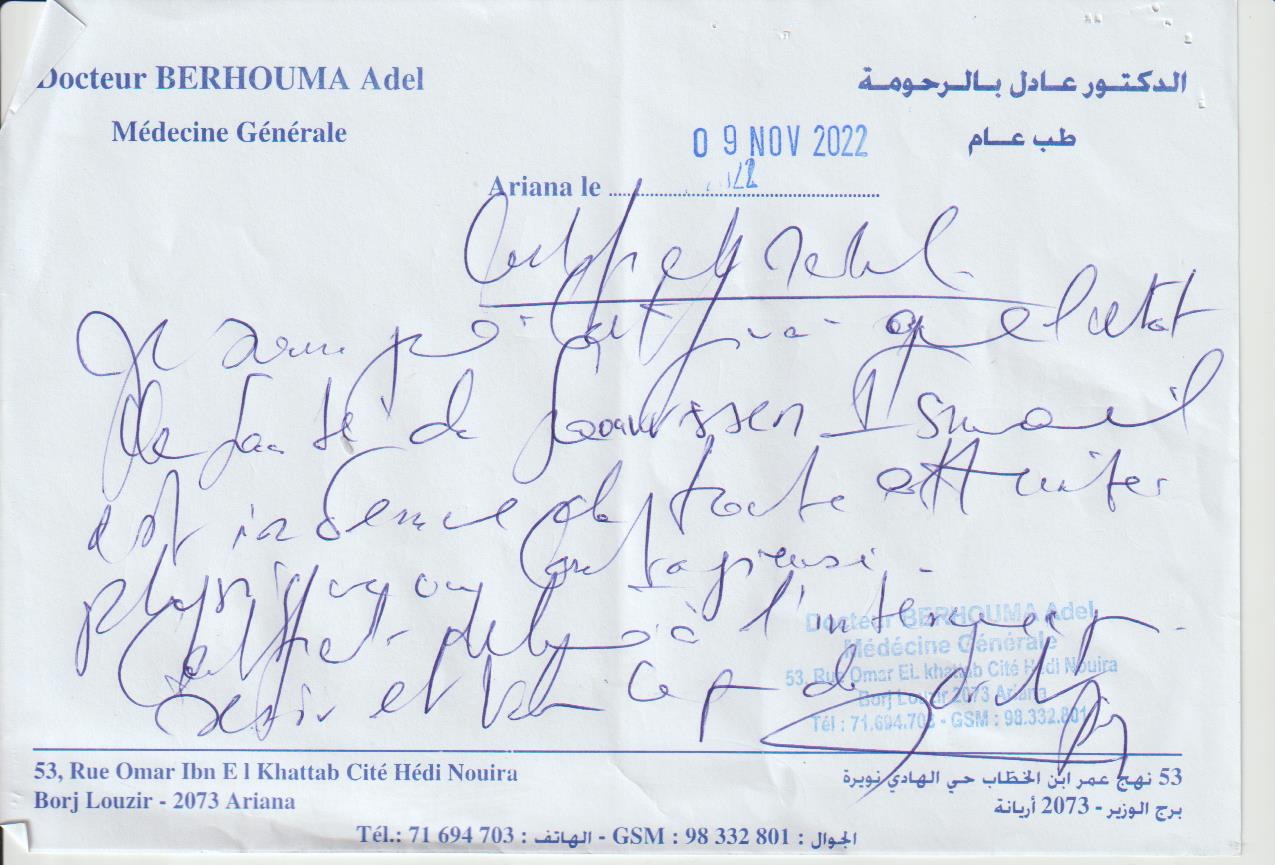 Docteur BERHOUMA Adel
الدكتور عادل بالرحومة
Médecine Générale
طب عام
09 NOV 2022
Ariana le
Certificat Médical
Je soussigné certifie que l'état
de santé de Ismail
est indemne de toute atteinte
physique ou contagieuse.
Certificat délivré à l'intéressé
servir et valoir ce que de droit
Docteur BERHOUMA Adel
Médécine Générale
53, Rue Omar EL khattab Cité Hédi Nouira
Borj Louzir 2073 Ariana
Tél : 71.694.703 - GSM : 98.332.801
53, Rue Omar Ibn E l Khattab Cité Hédi Nouira
53 نهج عمر ابن الخطّاب حي الهادي نويرة
Borj Louzir - 2073 Ariana
برج الوزير - 2073 أريانة
Tél.: 71 694 703 : الهاتف - GSM : 98 332 801 : الجوال